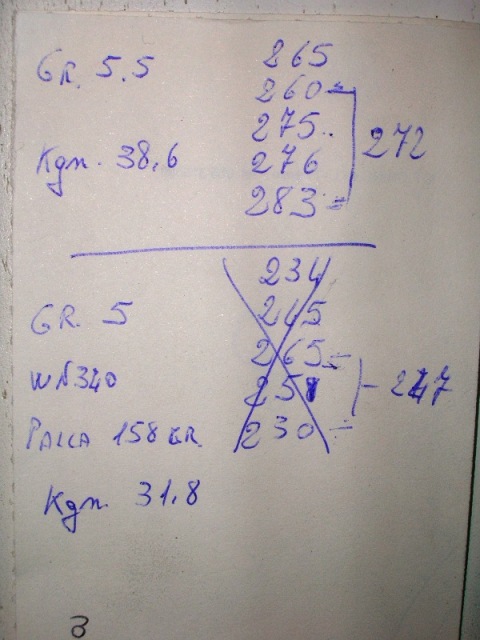 GR. 5.5 265
260 =
275.. 272
Kgm. 38.6 276
283 =
234
GR. 5 245
265 =
WN340 251 247
PALLA 158 GR. 230 =
Kgm. 31.8
3